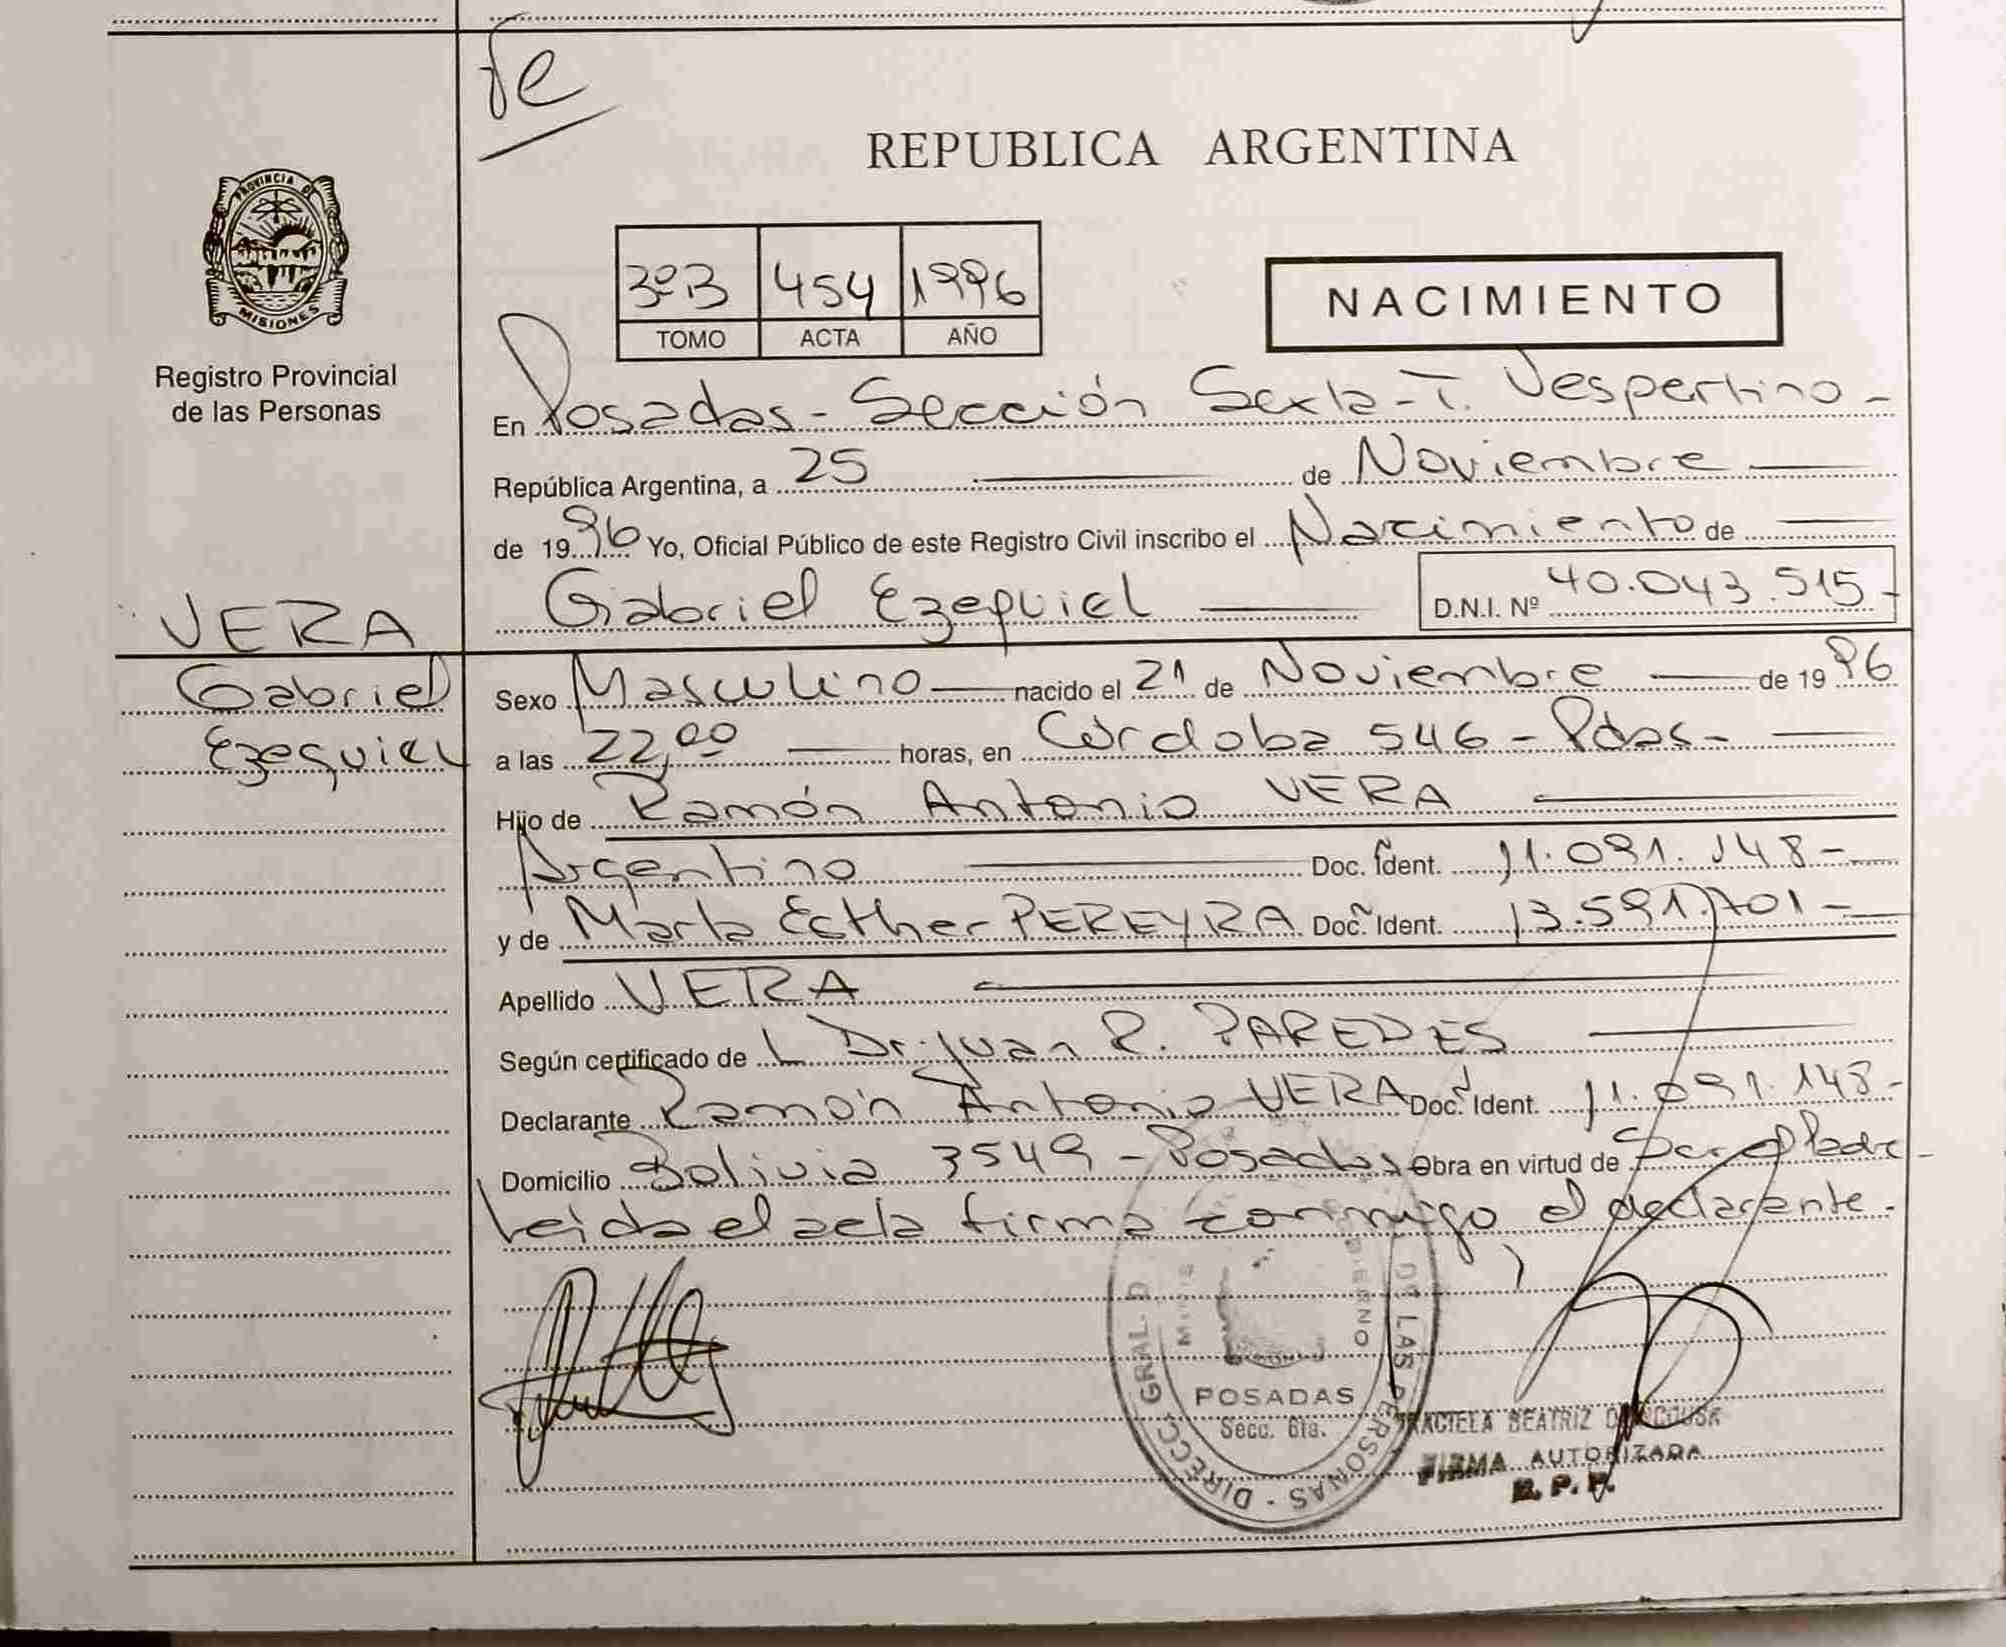 Te
REPUBLICA ARGENTINA
PROVINCIA DE
MISIONES
Registro Provincial
de las Personas
3ºB 454 1996
TOMO ACTA AÑO
NACIMIENTO
En Posadas - Sección Sexta - T. Vespertino -
República Argentina, a 25 de Noviembre
de 1996 Yo, Oficial Público de este Registro Civil inscribo el Nacimiento de
Gabriel Ezequiel D.N.I. Nº 40.043.515-
VERA
Gabriel
Ezequiel
Sexo Masculino nacido el 21 de Noviembre de 1996
a las 22,00 horas, en Córdoba 546 - Pdas -
Hijo de Ramón Antonio VERA
Argentino Doc. Ident. 11.091.148-
y de Marta Esther PEREYRA Doc. Ident. 13.591.701-
Apellido VERA
Según certificado de L Dr. Juan R. PAREDES
Declarante Ramón Antonio VERA Doc. Ident. 11.091.148-
Domicilio Bolivia 3549 - Posadas Obra en virtud de Ser el Padre -
Leida el acta firma conmigo el declarante.
DIRECC. GRAL. D DE LAS PERSONAS
POSADAS
Secc. 6ta.
BEATRIZ
FIRMA AUTORIZADA
R. P. P.